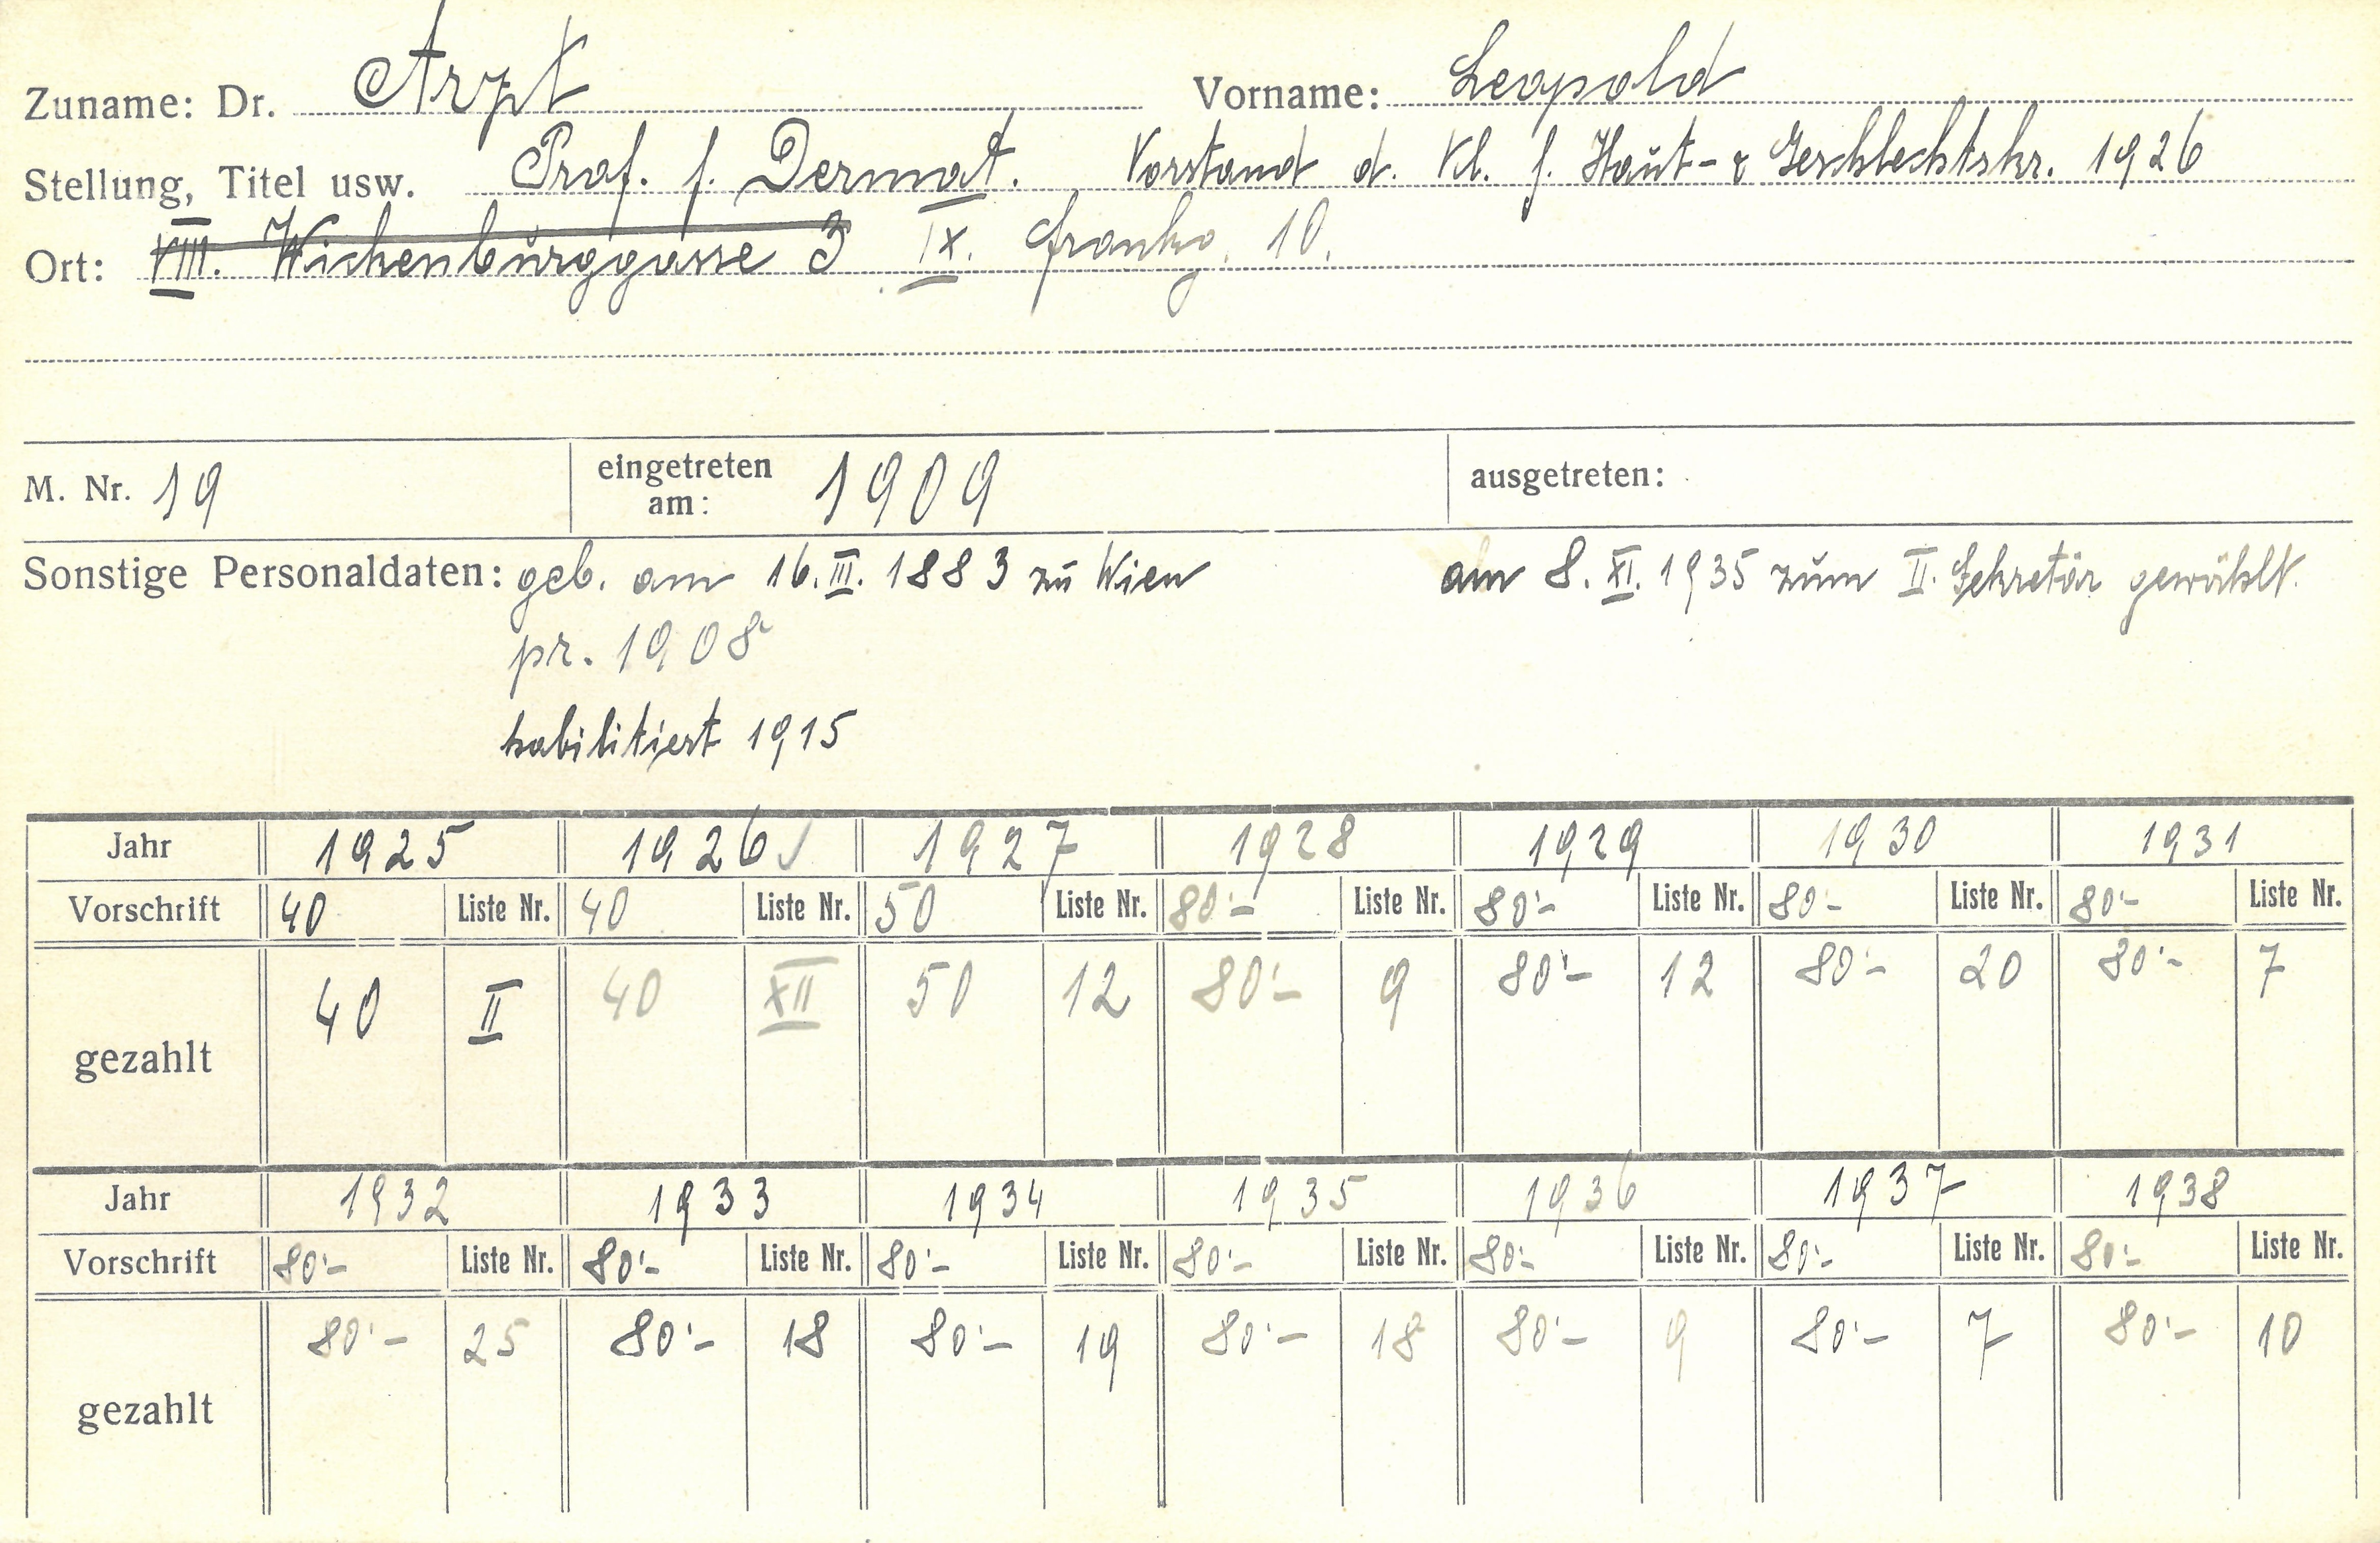 Zuname: Dr. Arzt Vorname: Leopold
Stellung, Titel usw. Prof. f. Dermat. Vorstand d. Kl. f. Haut- & Geschlechtskr. 1926
Ort: VIII. Wickenburggasse 3 IX. Frankg. 10.
M. Nr. 19 eingetreten am: 1909 ausgetreten:
Sonstige Personaldaten: geb. am 16. III. 1883 zu Wien am 8. XI. 1935 zum II. Sekretär gewählt.
pr. 1908
habilitiert 1915
Jahr 1925 1926 1927 1928 1929 1930 1931
Vorschrift 40 Liste Nr. 40 Liste Nr. 50 Liste Nr. 80·- Liste Nr. 80·- Liste Nr. 80·- Liste Nr. 80·- Liste Nr.
gezahlt 40 II 40 XII 50 12 80·- 9 80·- 12 80·- 20 80·- 7
Jahr 1932 1933 1934 1935 1936 1937 1938
Vorschrift 80·- Liste Nr. 80·- Liste Nr. 80·- Liste Nr. 80·- Liste Nr. 80·- Liste Nr. 80·- Liste Nr. 80·- Liste Nr.
gezahlt 80·- 25 80·- 18 80·- 19 80·- 18 80·- 9 80·- 7 80·- 10